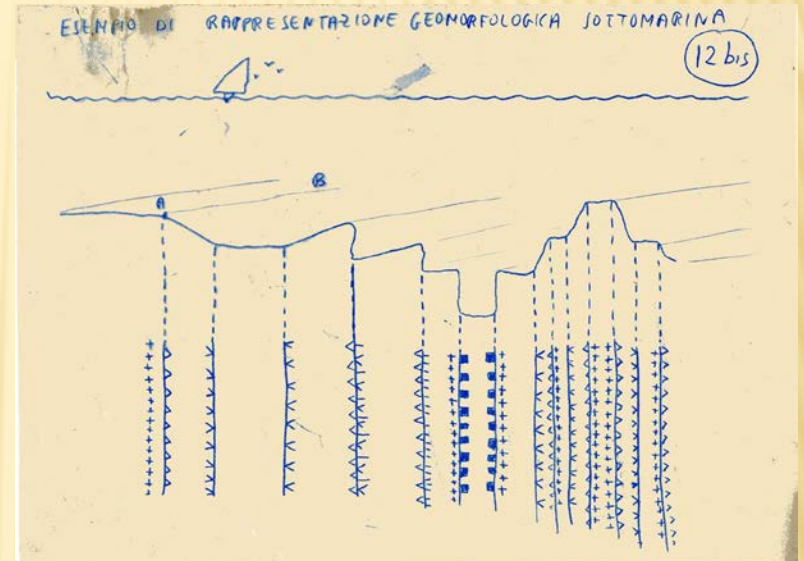 ESEMPIO DI RAPPRESENTAZIONE GEOMORFOLOGICA SOTTOMARINA
12 bis
A
B